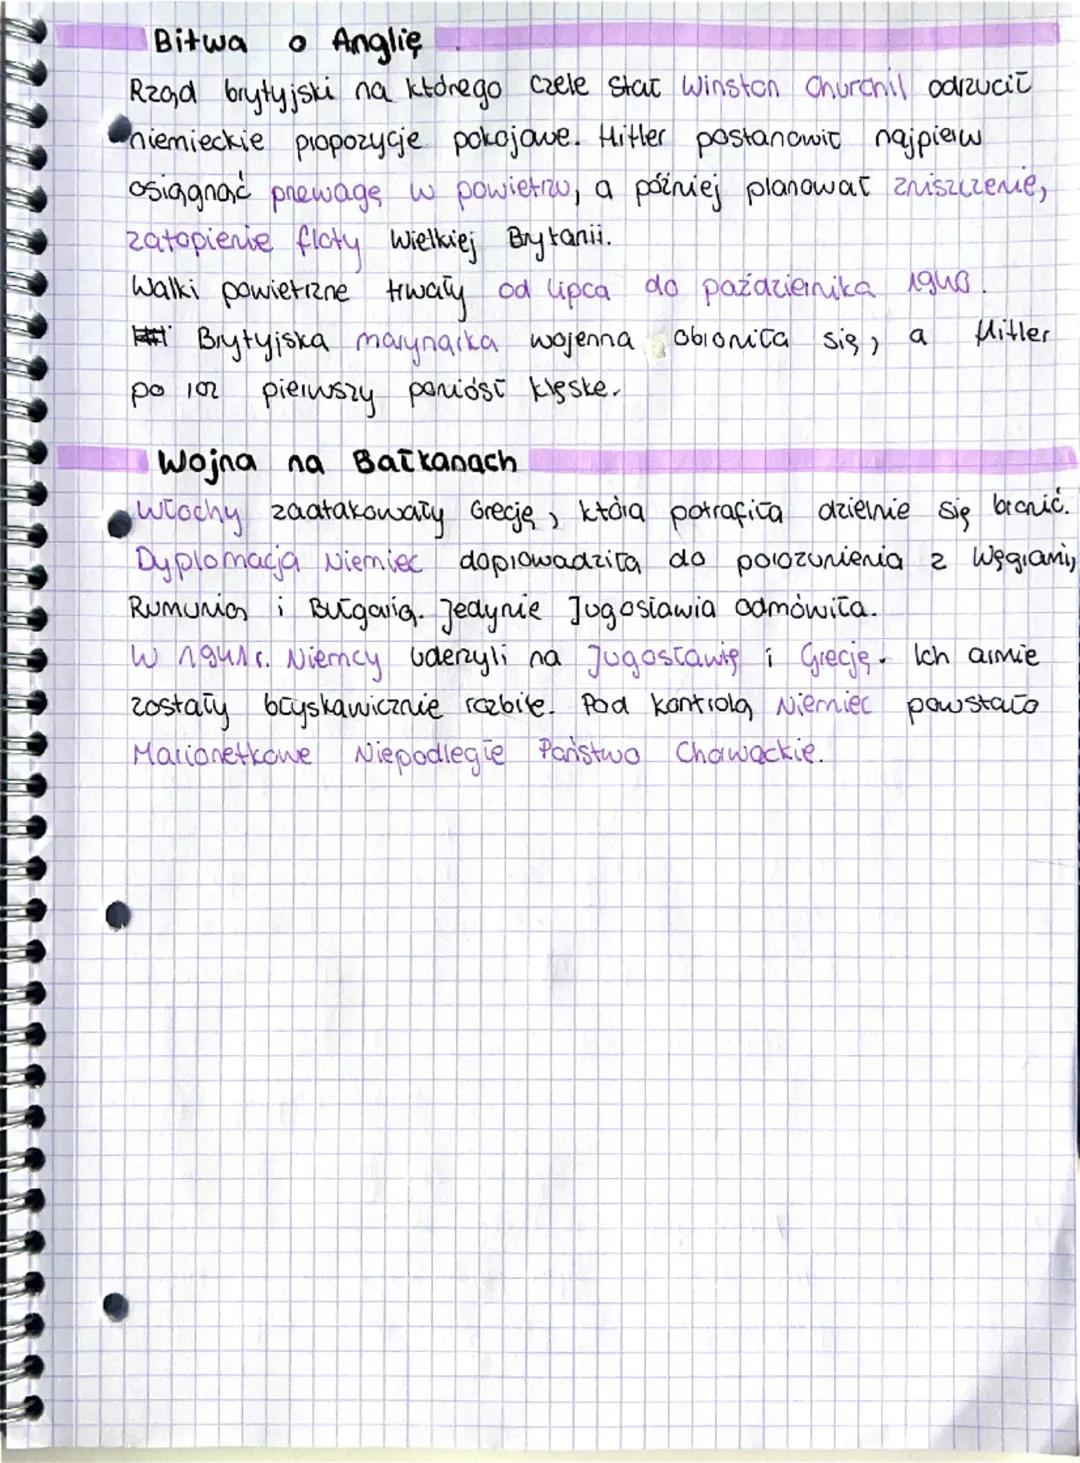 Bitwa o Anglię
Rząd brytyjski na którego czele stał Winston Churchil odrzucił
niemieckie propozycje pokojowe. Hitler postanowił najpierw
osiągnąć prewagę w powietrzu, a później planował zniszczenie,
zatopienie floty Wielkiej Brytanii.
Walki powietrzne trwały od lipca do października 1940.
Brytyjska marynarka wojenna obroniła się, a Hitler
po raz pierwszy poniósł klęske.
Wojna na Bałkanach
Włochy zaatakowały Grecję, która potrafiła dzielnie się bronić.
Dyplomacja Niemiec doprowadziła do porozumienia z Węgrami,
Rumunią i Bułgarią. Jedynie Jugosławia odmówiła.
W 1941r. Niemcy uderzyli na Jugosławię i Grecję. Ich armie
zostały błyskawicznie rozbite. Pod kontrolą Niemiec powstało
Marionetkowe Niepodległe Państwo Chowackie.